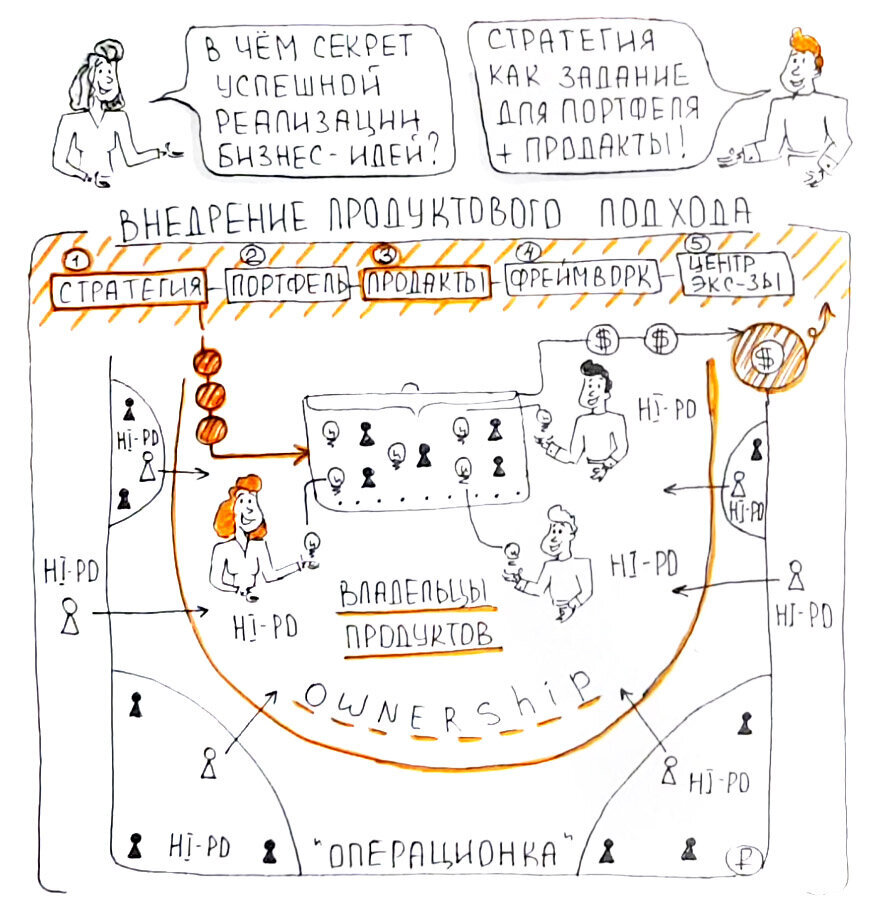 В ЧЁМ СЕКРЕТ
УСПЕШНОЙ
РЕАЛИЗАЦИИ
БИЗНЕС-ИДЕЙ?
СТРАТЕГИЯ
КАК ЗАДАНИЕ
ДЛЯ ПОРТФЕЛЯ
+ ПРОДАКТЫ!
ВНЕДРЕНИЕ ПРОДУКТОВОГО ПОДХОДА
1 2 3 4 5
СТРАТЕГИЯ ПОРТФЕЛЬ ПРОДАКТЫ ФРЕЙМВОРК ЦЕНТР
ЭКС-ЗЫ
$ $ $
HI-PD
HI-PD
HI-PD
HI-PD
HI-PD
HI-PD
HI-PD
HI-PD
ВЛАДЕЛЬЦЫ
ПРОДУКТОВ
OWNERShip
HI-PD
HI-PD
"ОПЕРАЦИОНКА"
₽